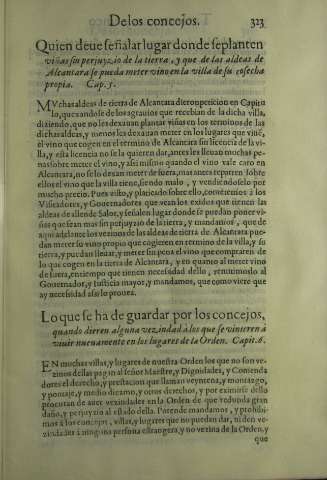 De los concejos. 323
Quien deue señalar lugar donde se planten
viñas sin perjuyzio de la tierra, y que de las aldeas de
Alcantara se pueda meter vino en la villa de su cosecha
propia. Cap. 5.
MVchas aldeas de tierra de Alcantara dieron peticion en Capitu
lo, quexandose de los agrauios que recebian de la dicha villa,
diziendo, que no les dexauan plantar viñas en los terminos de las
dichas aldeas, y menos les dexauan meter en los lugares que viuē,
el vino que cogen en el termino de Alcantara sin licencia de la vi-
lla, y esta licencia no se la quieren dar, antes les lleuan muchas pe-
nas sobre meter el vino, y assi mismo quando el vino vale caro en
Alcantara, no se lo dexan meter de fuera, mas antes reparten sobre
ellos el vino que la villa tiene, siendo malo, y vendiendoselo por
mucho precio. Pues visto, y platicado sobre ello, cometemos a los
Visitadores, y Gouernadores que vean los exidos que tienen las
aldeas de allende Salor, y señalen lugar donde se puedan poner vi-
ñas que sean mas sin perjuyzio de la tierra, y mandamos, que de
aqui adelante los vezinos de las aldeas de tierra de Alcantara pue-
dan meter su vino propio que cogieren en termino de la villa, y su
tierra, y puedan lleuar, y meter sin pena el vino que compraren de
lo que cogen en la tierra de Alcantara, y en quanto al meter vino
de fuera, en tiempo que tienen necessidad dello, remitimoslo al
Gouernador, y Iusticia mayor, y mandamos, que como viere que
ay necessidad assi lo prouea.
Lo que se ha de guardar por los concejos,
quando dieren alguna vezindad a los que se vinieren à
viuir nueuamente en los lugares de la Orden. Capit. 6.
EN muchas villas, y lugares de nuestra Orden los que no son ve-
zinos dellas pagan al señor Maestre, y Dignidades, y Comenda
dores el derecho, y prestacion que llaman veyntena, y montazgo,
y pontaje, y medio diezmo, y otros derechos, y por eximirse dello
procuran de auer vezindades en la Orden de que redunda gran
daño, y perjuyzio al estado della. Porende mandamos, y prohibi-
mos à los concejos, villas, y lugares que no puedan dar, ni den ve-
zindades à ninguna persona estrangera, y no vezina de la Orden, y
que